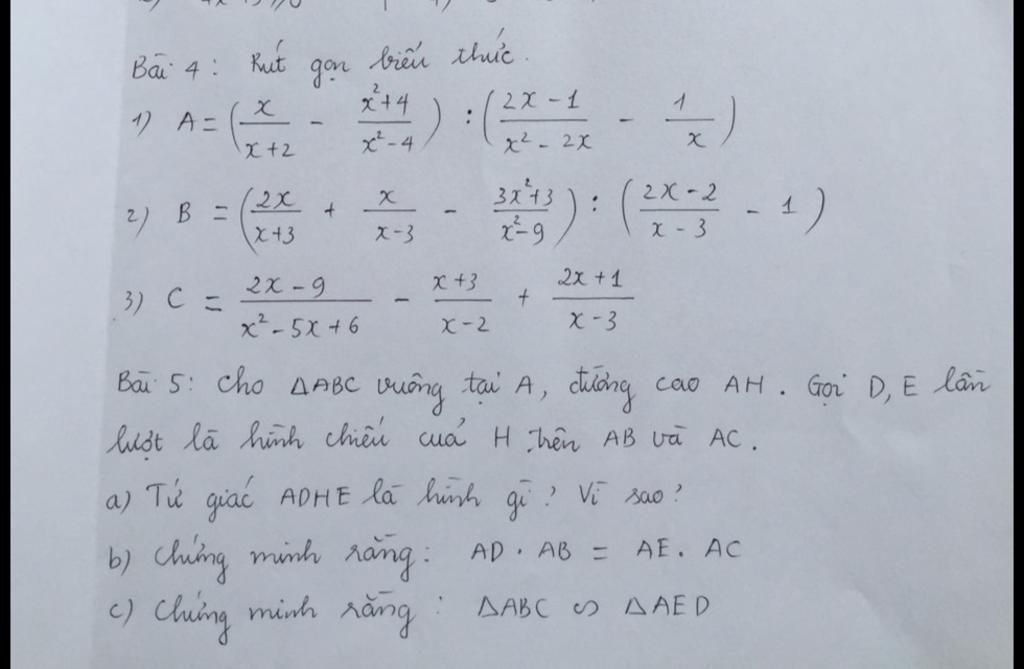 Bài 4: Rút gọn biểu thức.
1) A = (x/(x+2) - (x²+4)/(x²-4)) : ((2x-1)/(x²-2x) - 1/x)
2) B = (2x/(x+3) + x/(x-3) - (3x²+3)/(x²-9)) : ((2x-2)/(x-3) - 1)
3) C = (2x-9)/(x²-5x+6) - (x+3)/(x-2) + (2x+1)/(x-3)
Bài 5: Cho ΔABC vuông tại A, đường cao AH. Gọi D, E lần
lượt là hình chiếu của H trên AB và AC.
a) Tứ giác ADHE là hình gì? Vì sao?
b) Chứng minh rằng: AD . AB = AE. AC
c) Chứng minh rằng: ΔABC ∽ ΔAED